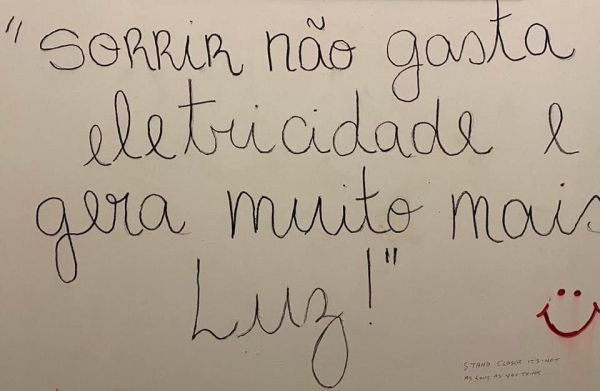 "SORRIR não gasta
eletricidade e
gera muito mais
Luz!"
STAND CLOSER IT'S NOT
AS LONG AS YOU THINK